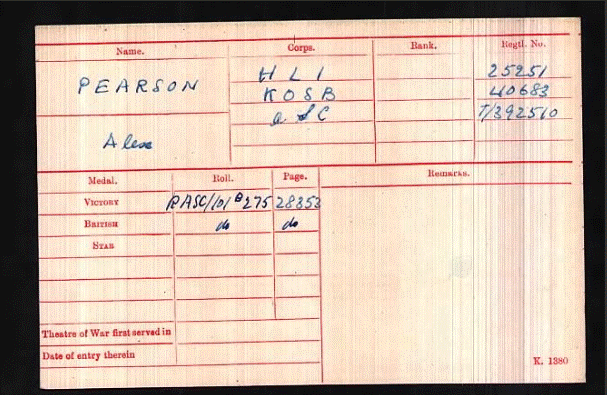 Name. Corps. Rank. Regtl. No.
PEARSON H L I 25251
K O S B 40683
Alex a S C T/392510
Medal. Roll. Page. Remarks.
VICTORY RASC/101 B 275 28353
BRITISH do do
STAR
Theatre of War first served in
Date of entry therein
K. 1380